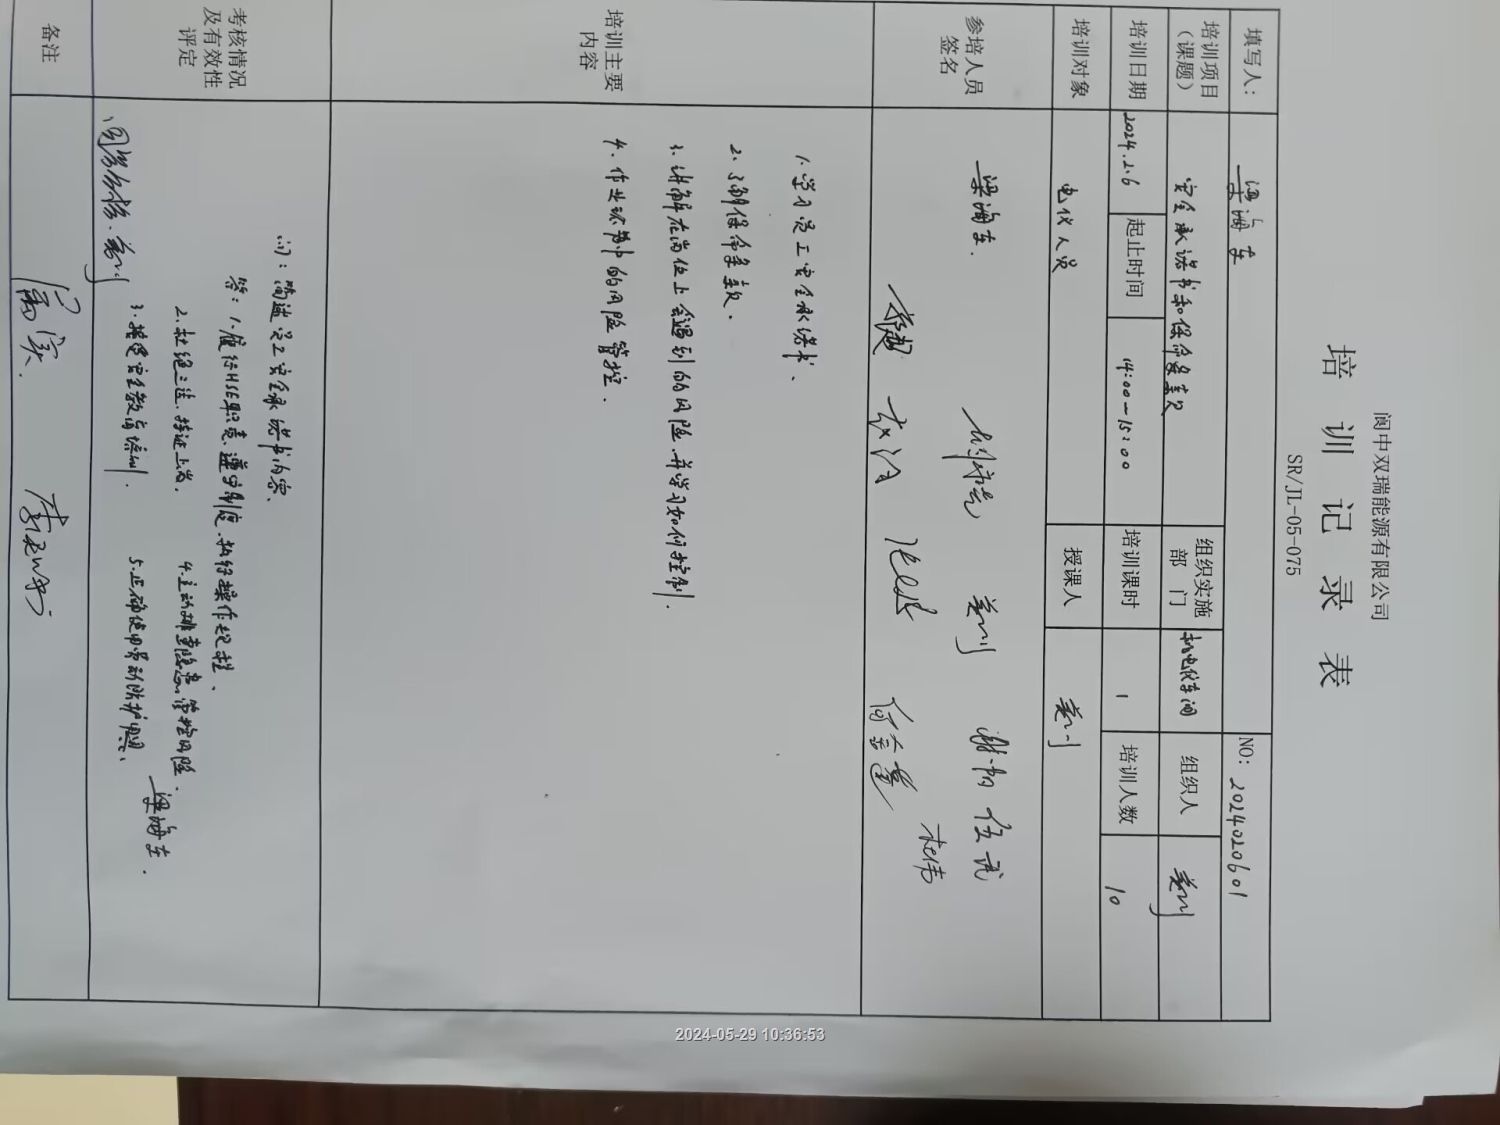 阆中双瑞能源有限公司
培训记录表
SR/JL-05-075
填写人： 梁海东 NO: 2024020601
培训项目（课题） 安全承诺书和保命条款 组织实施部门 机电仪车间 组织人 姜川
培训日期 2024.2.6 起止时间 14:00-15:00 培训课时 1 培训人数 10
培训对象 电仪人员 授课人 姜川
参培人员签名 梁海东 姜川 伍武
杜伟
培训主要内容
1.学习员工安全承诺书、
2.了解保命条款.
3.讲解在岗位上会遇到的风险.并学习如何控制.
4.作业环节中的风险管控.
考核情况及有效性评定
问：简述员工安全承诺书内容.
答：1.履行HSE职责.遵守制度.执行操作规程.
2.杜绝三违.持证上岗. 4.主动排查隐患.管控风险.
3.接受安全教育培训. 5.正确使用劳动防护用品.
梁海东.
姜川
备注
2024-05-29 10:36:53